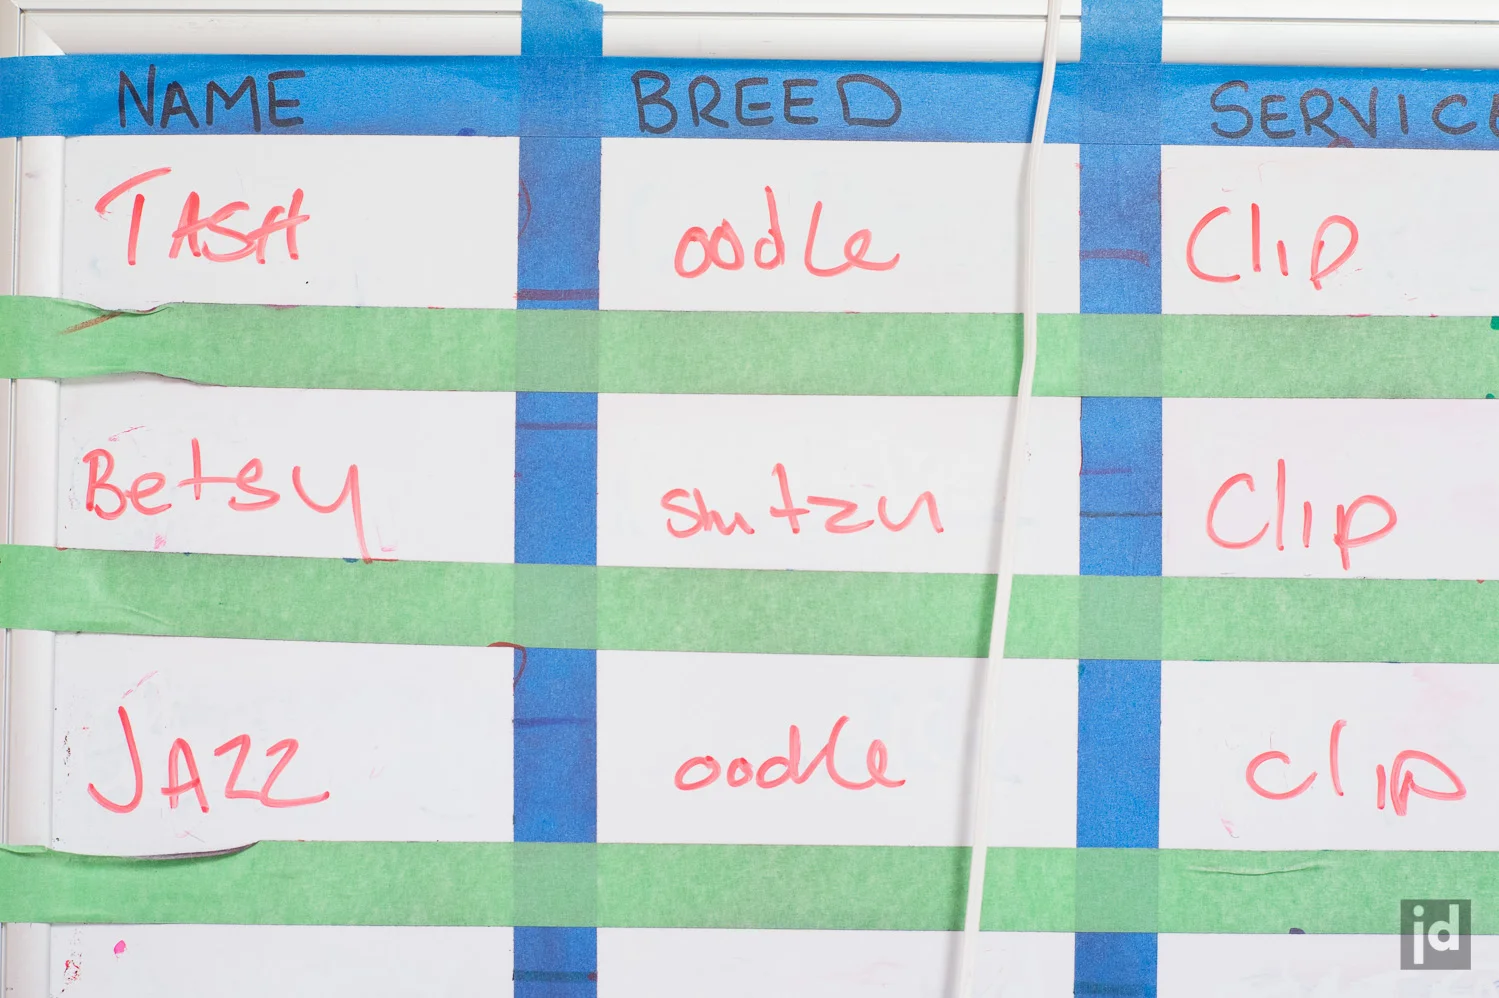 NAME BREED SERVICE
TASH oodle Clip
Betsy shitzu Clip
JAZZ oodle clip
jd